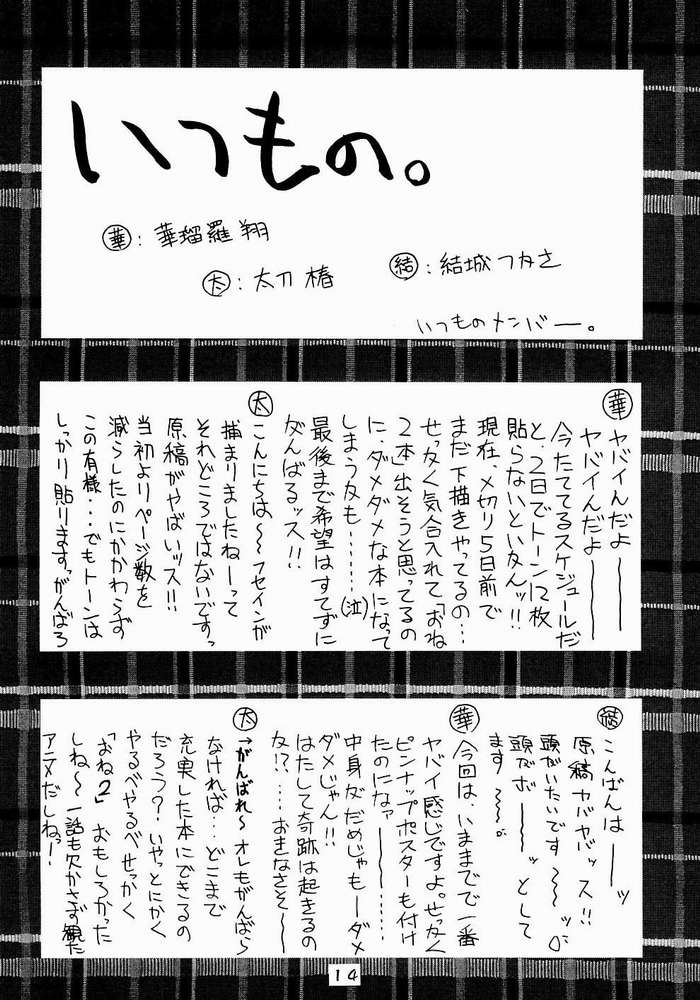 いつもの。
華：華瑠羅翔
太：太刀椿
結：結城つかさ
いつものメンバー。
華 ヤバイんだよ———
ヤバイんだよ———
今たててるスケジュールだ
と、2日でトーン12枚
貼らないといかんッ!!
現在、〆切り5日前で
まだ下描きやってるの…
せっかく気合入れて「おね
2本」出そうと思ってるの
に、ダメダメな本になって
しまうかも……(泣)
最後まで希望はすてずに
がんばるッス!!
太 こんにちは〜〜フセインが
捕まりましたねーって
それどころではないですっ
原稿がやばいッス!!
当初よりページ数を
減らしたのにかかわらず
この有様…でもトーンは
しっかり貼りますっがんばろ
結 こんばんは——ッ
原稿ヤバヤバッス!!
頭がいたいです〜〜ッ
頭がボ——ッとして
ます〜〜。
華 今回は、いままでで一番
ヤバイ感じですよ。せっかく
ピンナップポスターも付け
たのになァ———……
中身がだめじゃもーダメ
ダメじゃん!!
はたして奇跡は起きるの
か!?…おきなさそ〜——
太 →がんばれ〜オレもがんばら
なければ…どこまで
充実した本にできるの
だろう?いやっとにかく
やるべやるべせっかく
「おね2」おもしろかった
しね〜一話も欠かさず観た
アニメだしねっー!
14